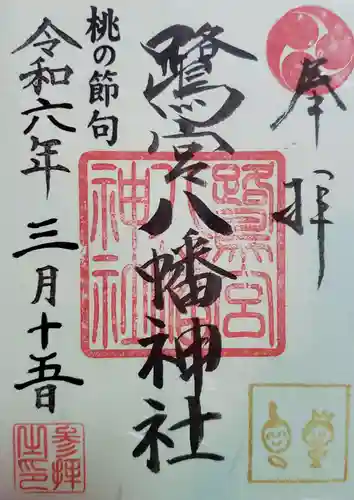 奉拝
鷺宮八幡神社
桃の節句
令和六年三月十五日
鷺宮八幡神社
参拝之印